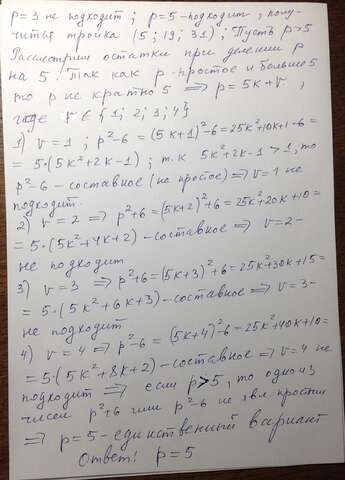 p=3 не подходит; p=5-подходит, полу-
читья тройка (5; 19; 31); Пусть p>5
Рассмотрим остатки при делении p
на 5. Так как p-простое и больше 5
то p не кратно 5 ⇒ p=5k+v,
где v ∈ {1; 2; 3; 4}
1) v=1; p²-6=(5k+1)²-6=25k²+10k+1-6=
=5·(5k²+2k-1); т.к 5k²+2k-1>1, то
p²-6-составное (не простое) ⇒ v=1 не
подходит.
2) v=2 ⇒ p²+6=(5k+2)²+6=25k²+20k+10=
=5·(5k²+4k+2)-составное ⇒ v=2-
не подходит
3) v=3 ⇒ p²+6=(5k+3)²+6=25k²+30k+15=
=5·(5k²+6k+3)-составное ⇒ v=3-
не подходит
4) v=4 ⇒ p²-6=(5k+4)²-6=25k²+40k+10=
=5·(5k²+8k+2)-составное ⇒ v=4 не
подходит ⇒ если p>5, то одно из
чисел p²+6 или p²-6 не явл. простым
⇒ p=5-единственный вариант
Ответ! p=5